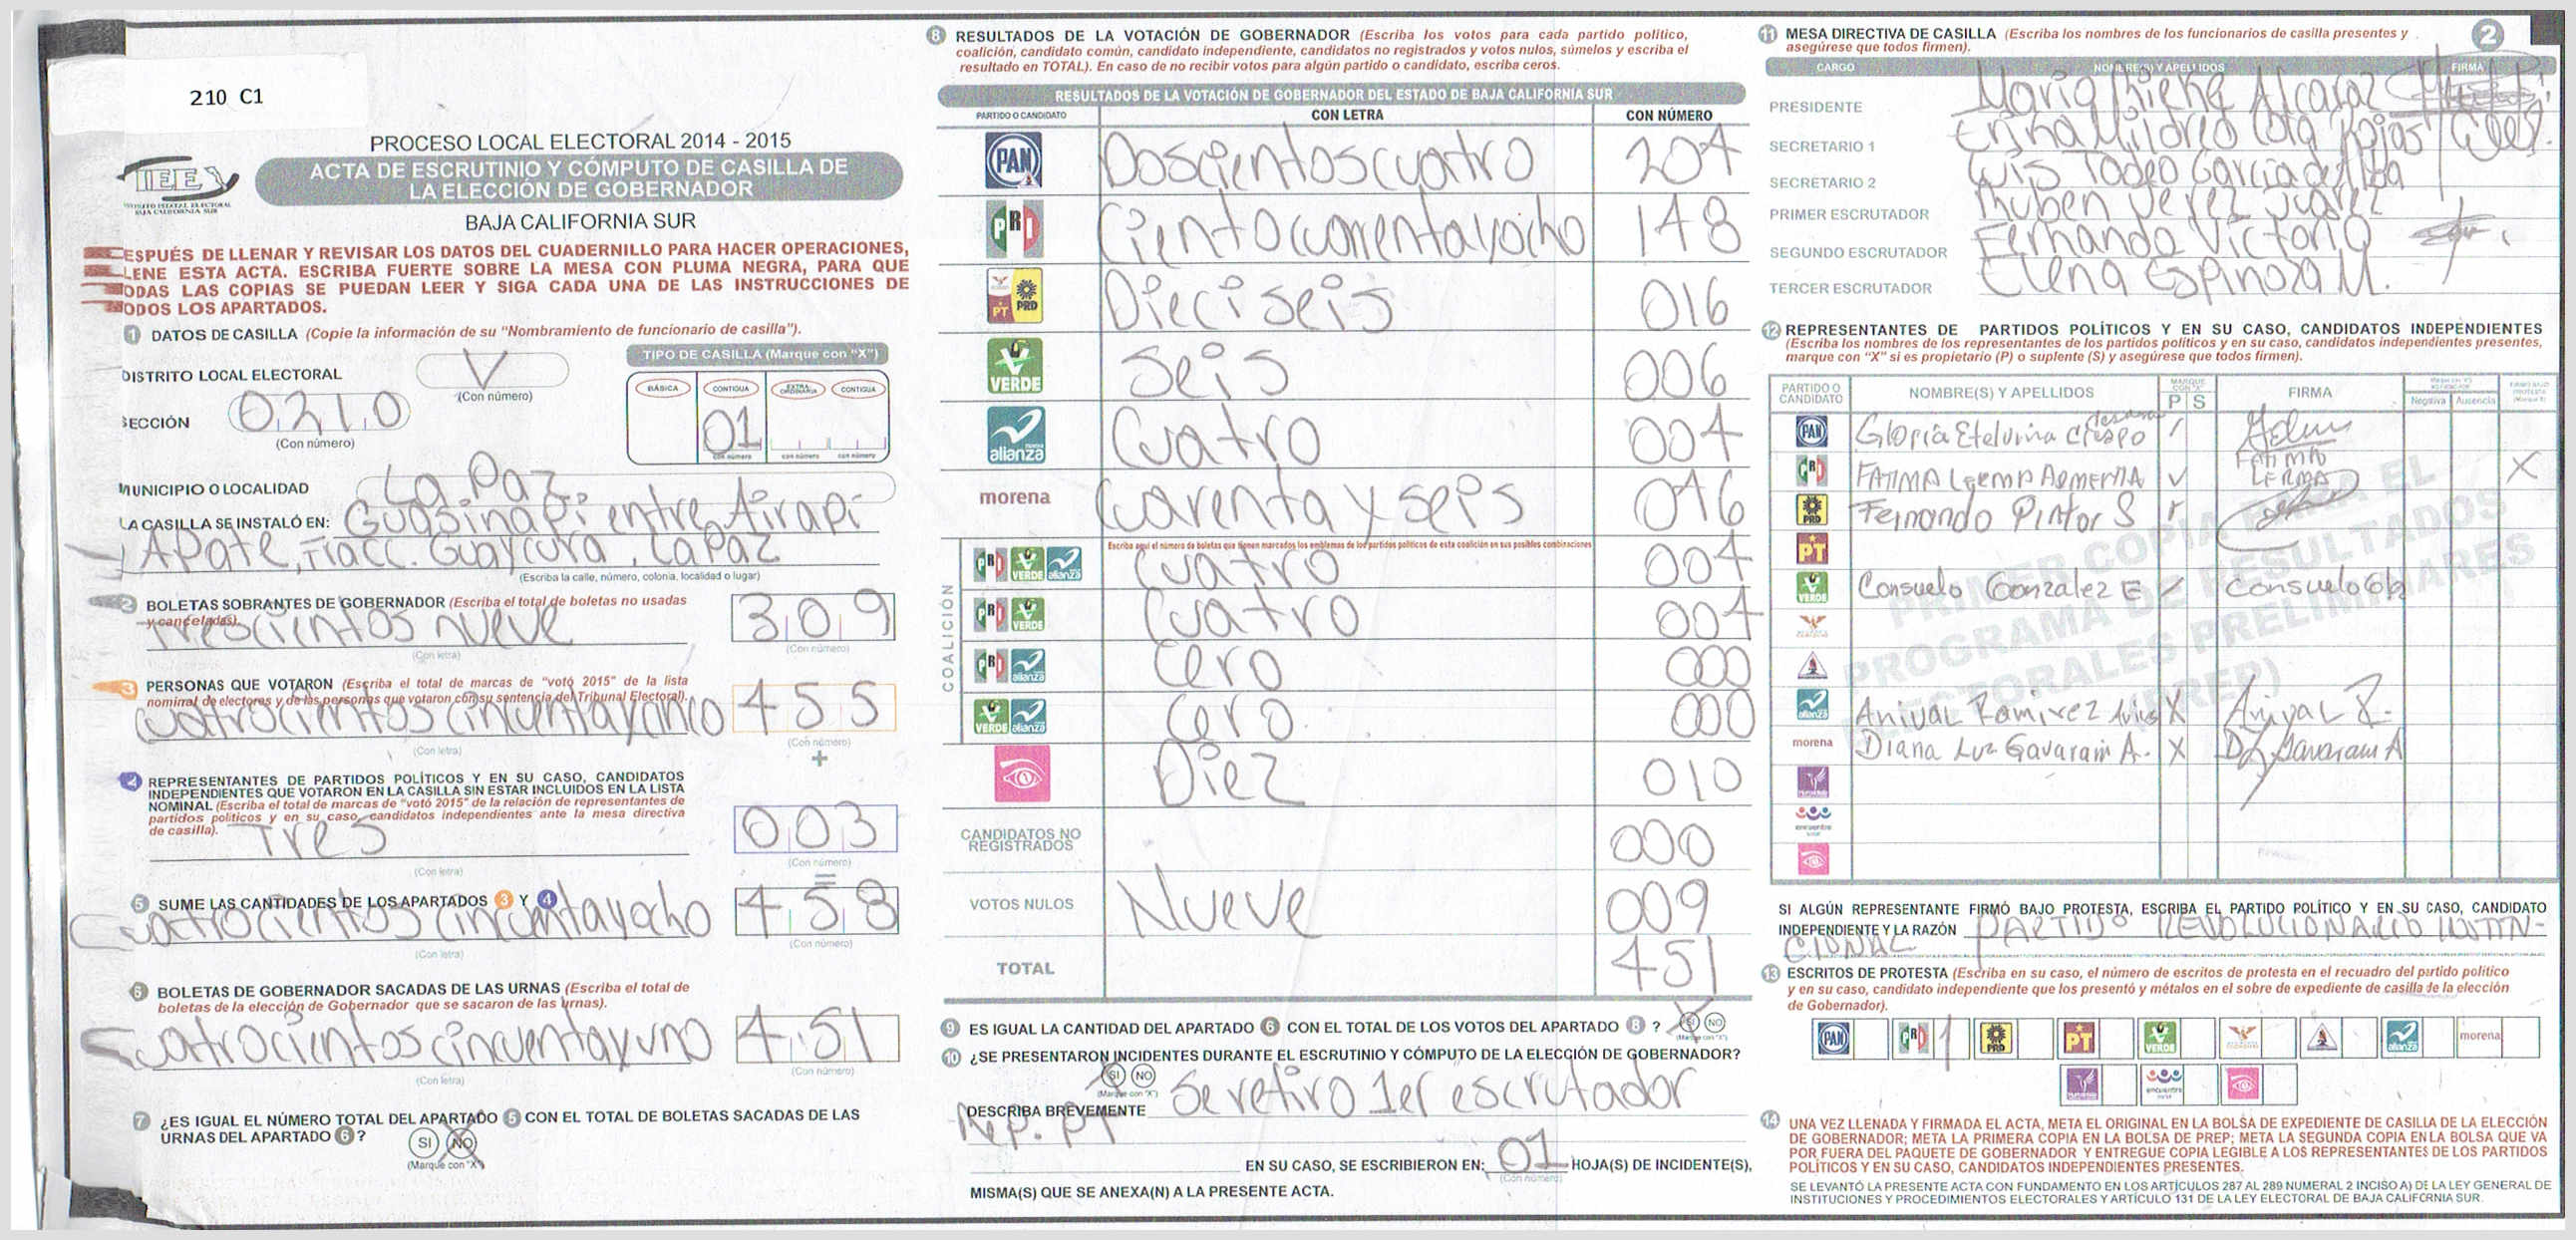 210 C1
PROCESO LOCAL ELECTORAL 2014 - 2015
IEE
INSTITUTO ESTATAL ELECTORAL
BAJA CALIFORNIA SUR
ACTA DE ESCRUTINIO Y CÓMPUTO DE CASILLA DE
LA ELECCIÓN DE GOBERNADOR
BAJA CALIFORNIA SUR
ESPUÉS DE LLENAR Y REVISAR LOS DATOS DEL CUADERNILLO PARA HACER OPERACIONES,
LENE ESTA ACTA. ESCRIBA FUERTE SOBRE LA MESA CON PLUMA NEGRA, PARA QUE
ODAS LAS COPIAS SE PUEDAN LEER Y SIGA CADA UNA DE LAS INSTRUCCIONES DE
ODOS LOS APARTADOS.
1 DATOS DE CASILLA (Copie la información de su "Nombramiento de funcionario de casilla").
DISTRITO LOCAL ELECTORAL V
(Con número)
TIPO DE CASILLA (Marque con "X")
BÁSICA CONTIGUA EXTRAORDINARIA CONTIGUA
01
con número con número con número
SECCIÓN 0210
(Con número)
MUNICIPIO O LOCALIDAD La Paz
LA CASILLA SE INSTALÓ EN: Guasinapi entre Airapi
y Apate, Fracc. Guaycura, La Paz
(Escriba la calle, número, colonia, localidad o lugar)
2 BOLETAS SOBRANTES DE GOBERNADOR (Escriba el total de boletas no usadas
y canceladas).
Trescientos nueve 309
(Con letra) (Con número)
3 PERSONAS QUE VOTARON (Escriba el total de marcas de "votó 2015" de la lista
nominal de electores y de las personas que votaron con su sentencia del Tribunal Electoral).
Cuatrocientos cincuentaycinco 455
(Con letra) (Con número)
+
4 REPRESENTANTES DE PARTIDOS POLÍTICOS Y EN SU CASO, CANDIDATOS
INDEPENDIENTES QUE VOTARON EN LA CASILLA SIN ESTAR INCLUIDOS EN LA LISTA
NOMINAL (Escriba el total de marcas de "votó 2015" de la relación de representantes de
partidos políticos y en su caso, candidatos independientes ante la mesa directiva
de casilla).
Tres 003
(Con letra) (Con número)
=
5 SUME LAS CANTIDADES DE LOS APARTADOS 3 Y 4
Cuatrocientos cincuentayocho 458
(Con letra) (Con número)
6 BOLETAS DE GOBERNADOR SACADAS DE LAS URNAS (Escriba el total de
boletas de la elección de Gobernador que se sacaron de las urnas).
Cuatrocientos cincuentayuno 451
(Con letra) (Con número)
7 ¿ES IGUAL EL NÚMERO TOTAL DEL APARTADO 5 CON EL TOTAL DE BOLETAS SACADAS DE LAS
URNAS DEL APARTADO 6 ? SI NO
(Marque con "X")
8 RESULTADOS DE LA VOTACIÓN DE GOBERNADOR (Escriba los votos para cada partido político,
coalición, candidato común, candidato independiente, candidatos no registrados y votos nulos, súmelos y escriba el
resultado en TOTAL). En caso de no recibir votos para algún partido o candidato, escriba ceros.
RESULTADOS DE LA VOTACIÓN DE GOBERNADOR DEL ESTADO DE BAJA CALIFORNIA SUR
PARTIDO O CANDIDATO CON LETRA CON NÚMERO
PAN Doscientos cuatro 204
PRI Cientocuarentayocho 148
PT PRD Dieciseis 016
VERDE Seis 006
alianza Cuatro 004
morena Cuarenta y seis 046
Escriba aquí el número de boletas que tienen marcados los emblemas de los partidos políticos de esta coalición en sus posibles combinaciones
COALICIÓN
PRI VERDE alianza Cuatro 004
PRI VERDE Cuatro 004
PRI alianza Cero 000
VERDE alianza Cero 000
Diez 010
CANDIDATOS NO
REGISTRADOS 000
VOTOS NULOS Nueve 009
TOTAL 451
9 ES IGUAL LA CANTIDAD DEL APARTADO 6 CON EL TOTAL DE LOS VOTOS DEL APARTADO 8 ? SI NO
(Marque con "X")
10 ¿SE PRESENTARON INCIDENTES DURANTE EL ESCRUTINIO Y CÓMPUTO DE LA ELECCIÓN DE GOBERNADOR?
SI NO
(Marque con "X")
DESCRIBA BREVEMENTE Se retiro 1er escrutador
Rep. PT
EN SU CASO, SE ESCRIBIERON EN: 01 HOJA(S) DE INCIDENTE(S),
(Con número)
MISMA(S) QUE SE ANEXA(N) A LA PRESENTE ACTA.
2
11 MESA DIRECTIVA DE CASILLA (Escriba los nombres de los funcionarios de casilla presentes y
asegúrese que todos firmen).
CARGO NOMBRE(S) Y APELLIDOS FIRMA
PRESIDENTE Maria Alcaraz
SECRETARIO 1 Rojas
SECRETARIO 2 Luis Tadeo Garcia de Alba
PRIMER ESCRUTADOR Ruben Perez Juarez
SEGUNDO ESCRUTADOR Fernando Victorio
TERCER ESCRUTADOR Elena Espinoza M.
12 REPRESENTANTES DE PARTIDOS POLÍTICOS Y EN SU CASO, CANDIDATOS INDEPENDIENTES
(Escriba los nombres de los representantes de los partidos políticos y en su caso, candidatos independientes presentes,
marque con "X" si es propietario (P) o suplente (S) y asegúrese que todos firmen).
PARTIDO O
CANDIDATO NOMBRE(S) Y APELLIDOS MARQUE CON "X" P S FIRMA Negativa Ausencia
PAN Gloria Etelvina Crespo
PRI FATIMA Lerma ARMENTA FATIMA LERMA X
PRD Fernando Pintor S
PT
VERDE Consuelo Gonzalez E Consuelo Glz
alianza Anival Ramirez Aviles X Anival R.
morena Diana Luz Gavarain A. X D L Gavarain A
encuentro
PRIMER COPIA PARA EL
PROGRAMA DE RESULTADOS
ELECTORALES PRELIMINARES
(PREP)
SI ALGÚN REPRESENTANTE FIRMÓ BAJO PROTESTA, ESCRIBA EL PARTIDO POLÍTICO Y EN SU CASO, CANDIDATO
INDEPENDIENTE Y LA RAZÓN PARTIDO REVOLUCIONARIO
CIONAL
13 ESCRITOS DE PROTESTA (Escriba en su caso, el número de escritos de protesta en el recuadro del partido político
y en su caso, candidato independiente que los presentó y métalos en el sobre de expediente de casilla de la elección
de Gobernador).
PAN PRI 1 PRD PT VERDE alianza morena
encuentro
14 UNA VEZ LLENADA Y FIRMADA EL ACTA, META EL ORIGINAL EN LA BOLSA DE EXPEDIENTE DE CASILLA DE LA ELECCIÓN
DE GOBERNADOR; META LA PRIMERA COPIA EN LA BOLSA DE PREP; META LA SEGUNDA COPIA EN LA BOLSA QUE VA
POR FUERA DEL PAQUETE DE GOBERNADOR Y ENTREGUE COPIA LEGIBLE A LOS REPRESENTANTES DE LOS PARTIDOS
POLÍTICOS Y EN SU CASO, CANDIDATOS INDEPENDIENTES PRESENTES.
SE LEVANTÓ LA PRESENTE ACTA CON FUNDAMENTO EN LOS ARTÍCULOS 287 AL 289 NUMERAL 2 INCISO A) DE LA LEY GENERAL DE
INSTITUCIONES Y PROCEDIMIENTOS ELECTORALES Y ARTÍCULO 131 DE LA LEY ELECTORAL DE BAJA CALIFORNIA SUR.